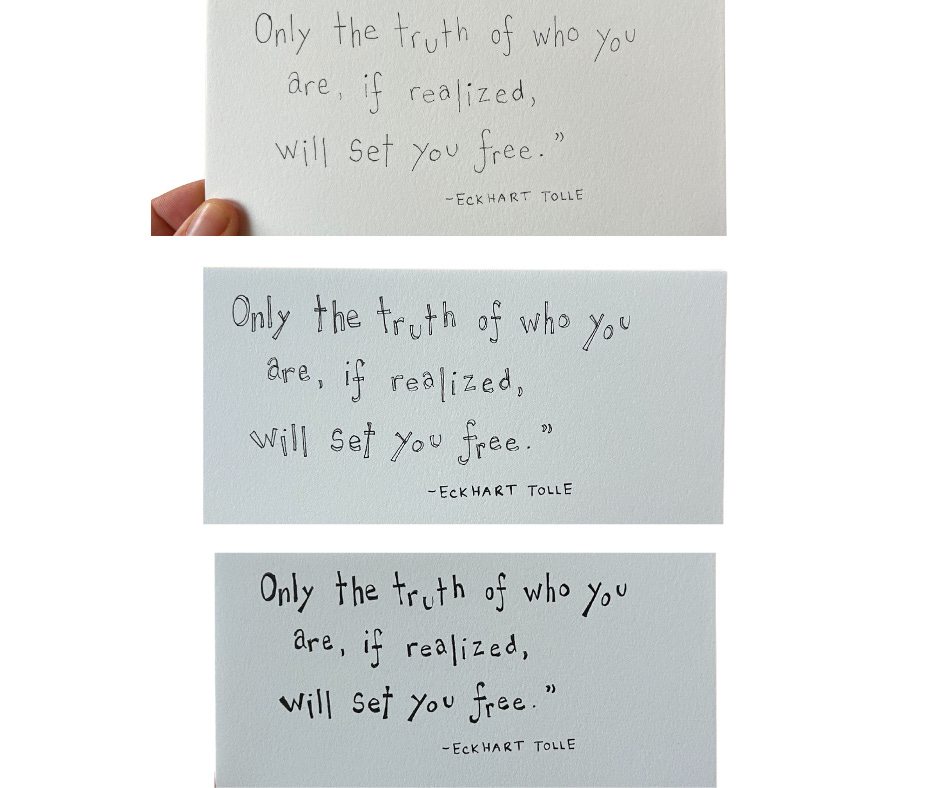 Only the truth of who you
are, if realized,
will set you free."
-ECKHART TOLLE
Only the truth of who you
are, if realized,
will set you free."
-ECKHART TOLLE
Only the truth of who you
are, if realized,
will set you free."
-ECKHART TOLLE